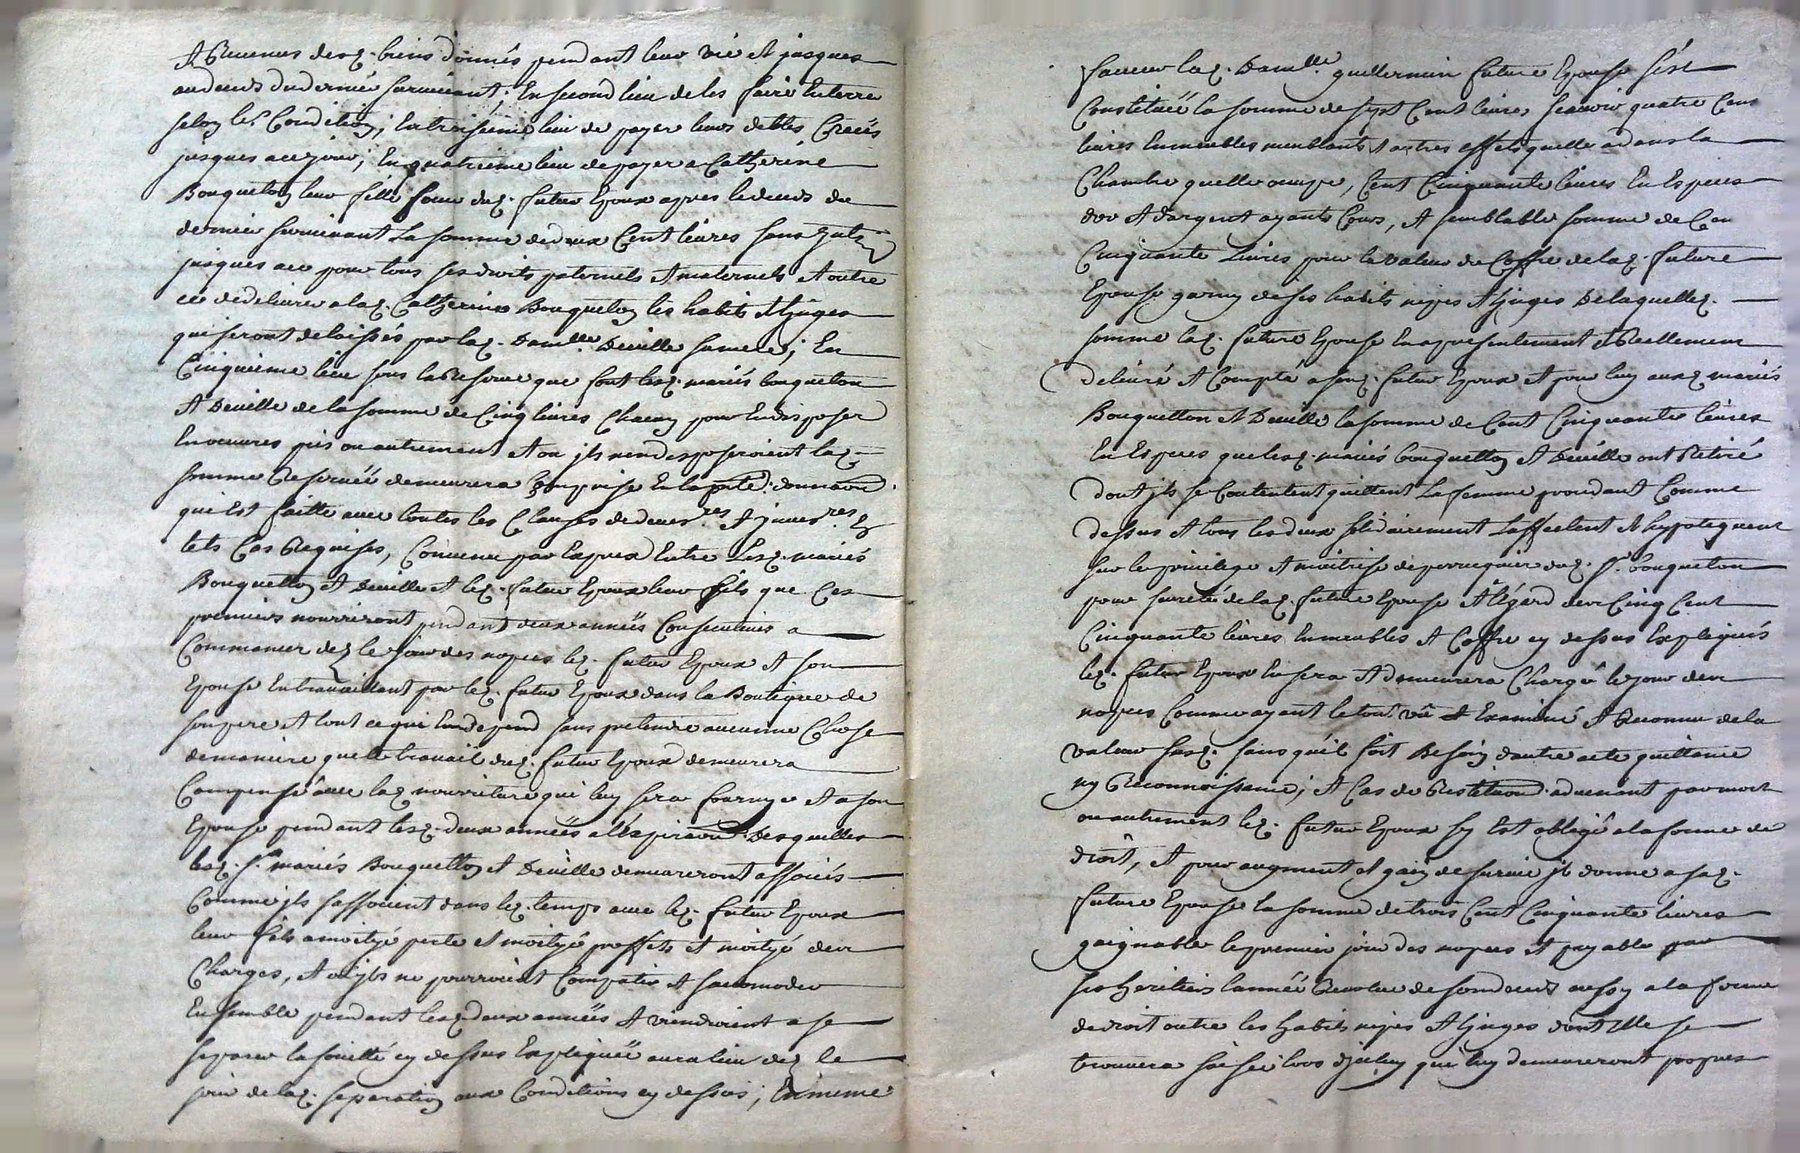 A Revenus desd. biens donnés pendant leur vie et jusques
au deces du dernier survivant; En second lieu de les faire Enterrer
selon leur Condition; En troisieme lieu de payer leurs debtes Creés
jusques a ce jour; En quatrieme lieu de payer a Catherine
Bouqueton leur fille sœur dud. futur Epoux apres le deces du
dernier survivant La somme de deux Cent livres sans
jusques au pour tous ses droits paternels & maternels & outre
ce de delivrer a lad. Catherine Bouqueton les habits & linges
qui seront delaissés par lad. Damlle. Deville sa mere; En
Cinquieme lieu sous la Reserve que font lesd. mariés bouqueton
& Deville de la somme de Cinq livres Chacun pour En disposer
En œuvres pies ou autrement & ou ils n'en disposeroient lad.
somme Reservée demeurera Comprise En la pnte. donnaon.
qui Est faitte avec toutes les Clauses de devesres. & jnvesres. En
tels Cas Requises, Convenu par Exprès Entre Lesd. mariés
Bouquetton & Deville & led. futur Epoux leur fils que Ces
premiers nourriront pendant deux années Consecutives a
Commancer dez le jour des nopces led. futur Epoux & son
Epouse En travaillant par led. futur Epoux dans la Boutique de
son pere & tout ce qui En depend sans pretendre aucune Chose
de maniere que le travail dud. futur Epoux demeurera
Compensé avec lad. nourriture qui luy sera fournye & a son
Epouse pendant lesd. deux années a l'Expiraon. Desquelles
lesd. Srs. mariés Bouquetton et Deville demeureront associés
Comme jls s'associent dans led. temps avec led. futur Epoux
leur fils a moityé perte et moityé proffits & moityé des
Charges, & où jls ne pourroient Compatir & s'accomoder
Ensemble pendant lesd. deux années & viendroient a se
separer la société cy dessus Expliquée aura lieu dez le
jour de lad. separation aux Conditions cy dessus; En meme
faveur lad. Damlle. guillermin future Epouse s'est
Constituée la somme de sept Cent livres, scavoir quatre Cent
livres En meubles meublants & autres effets quelle a dans la
Chambre quelle occupe, Cent Cinquante livres En Especes
d'or & d'argent ayants Cours, & semblable somme de Cent
Cinquante Livres pour la valeur du Coffre de lad. future
Epouse garny de ses habits nipes & linges De laquelled.
somme lad. future Epouse En a presentement & Reellement
delivré & Compté a sond. futur Epoux & pour luy auxd. mariés
Bouquetton & Deville la somme de Cent Cinquante livres
En Especes que lesd. mariés bouquetton & Deville ont Retiré
dont jls se Contentent quittent La femme procedant Comme
dessus & tous les deux solidairement L'affectent & hypotequent
sur le privilege & maitrise de perruquier dud. Sr. bouqueton
pour sureté de lad. future Epouse & a l'égard des Cinq Cent
Cinquante livres En meubles & Coffre cy dessus Expliqués
led. futur Epoux En sera & demeurera Chargé le jour des
nopces Comme ayant le tout vû & Examiné & Reconnu de la
valeur susd. sans qu'il soit Besoin d'autre acte quittance
ny Reconnoissance; & Cas de Restituon. advenant par mort
ou autrement led. futur Epoux s'y Est obligé a la forme de
droit, & pour augment et gain de survie jl donne a sad.
future Epouse la somme de trois Cent Cinquante livres
gaignable le premier jour des nopces & payable par
ses heritiers l'année Revolue de son deces aussy a la forme
de droit outre les habits nipes & linges dont Elle se
trouvera saisie lors d'jceluy qui luy demeureront propres